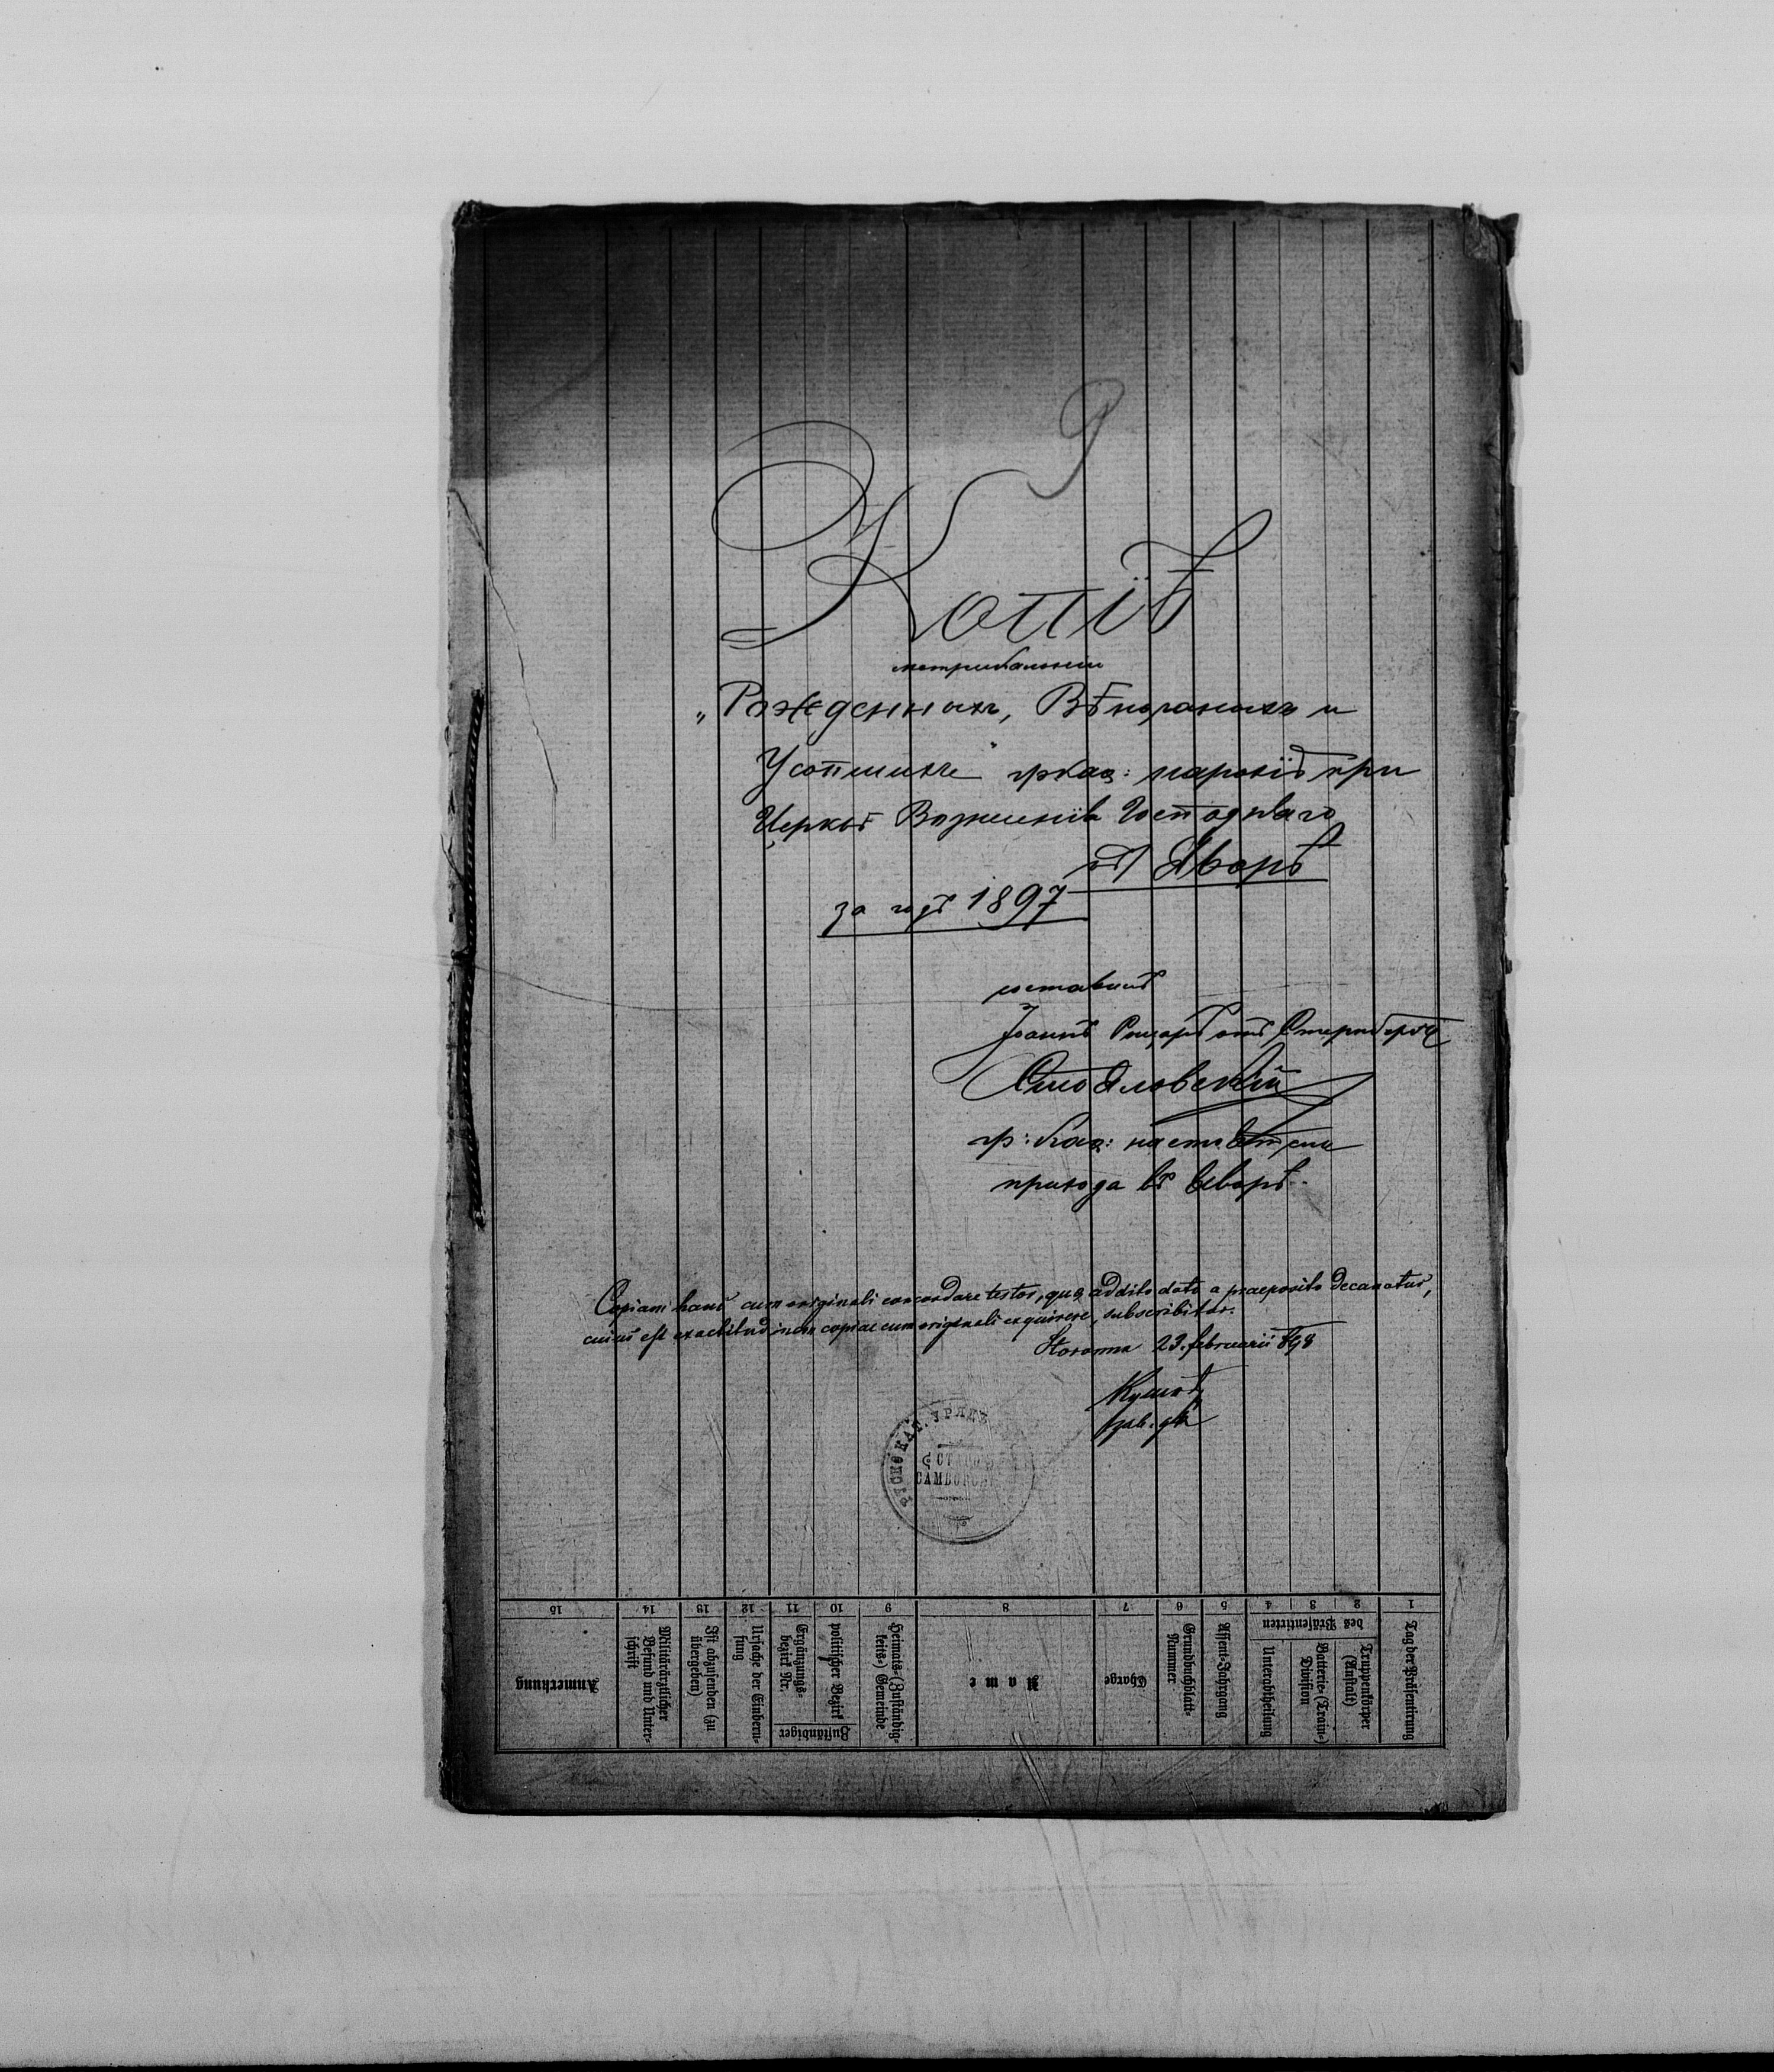 9
Копіѣ
метрикальніи
„Рожденныхъ, Вѣнчаныхъ и
Усопшихъ" гр.каѳ: парохіѣ при
Церкві Вознесенія Господняго
въ Яворѣ
за годъ 1897
составилъ
Іоаннъ Рыцарь отъ Штернберг
гр: каѳ: настоятель
прихода въ Яворѣ.
Copiam hanc cum originali concordare testor, qua, addito dato a praeposito Decanatus,
cuius est exactitudinem copiae cum originali exquirere, subscribitur.
23. februarii 898
КАТ. УРЯДЪ
СТАРО
САМБОРСК
1 2 3 4 5 6 7 8 9 10 11 12 13 14 15
Tag der Präsentirung
des Präsentirten
Truppenkörper (Anstalt)
Batterie- (Train-) Division
Unterabtheilung
Assent-Jahrgang
Grundbuchblatt-Nummer
Charge
Name
Heimats- (Zuständigkeits-) Gemeinde
Zuständiger
politischer Bezirk
Ergänzungsbezirk Nr.
Ursache der Einberufung
Ist abzusenden (zu übergeben)
Militärärztlicher Befund und Unterschrift
Anmerkung